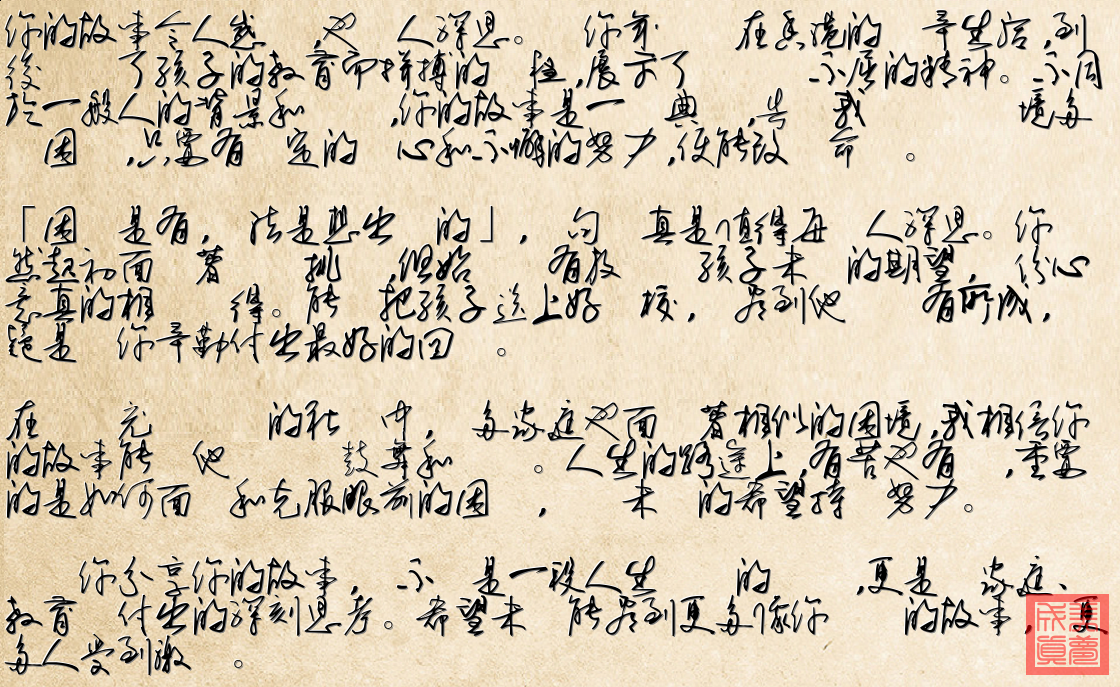 你的故事令人感 ,也 人深思。 你年 在香港的 辛生活,到
後 了孩子的教育而拼搏的 程,展示了 不屈的精神。不同
於一般人的背景和 ,你的故事是一 典,告 我 境多
困 ,只要有 定的 心和不懈的努力,便能改 命 。
「困 是有, 法是想出 的」, 句 真是值得每 人深思。你
然起初面 著 挑 ,但始 有放 孩子未 的期望, 份心
意真的相 得。能 把孩子送上好 校, 看到他 有所成,
是 你辛勤付出最好的回 。
在 充 的社 中, 多家庭也面 著相似的困境,我相信你
的故事能 他 鼓舞和 。人生的路途上,有苦也有 ,重要
的是如何面 和克服眼前的困 , 未 的希望持 努力。
你分享你的故事, 不 是一段人生 的 ,更是 家庭、
教育 付出的深刻思考。希望未 能看到更多像你 的故事, 更
多人受到激 。
美夢成真